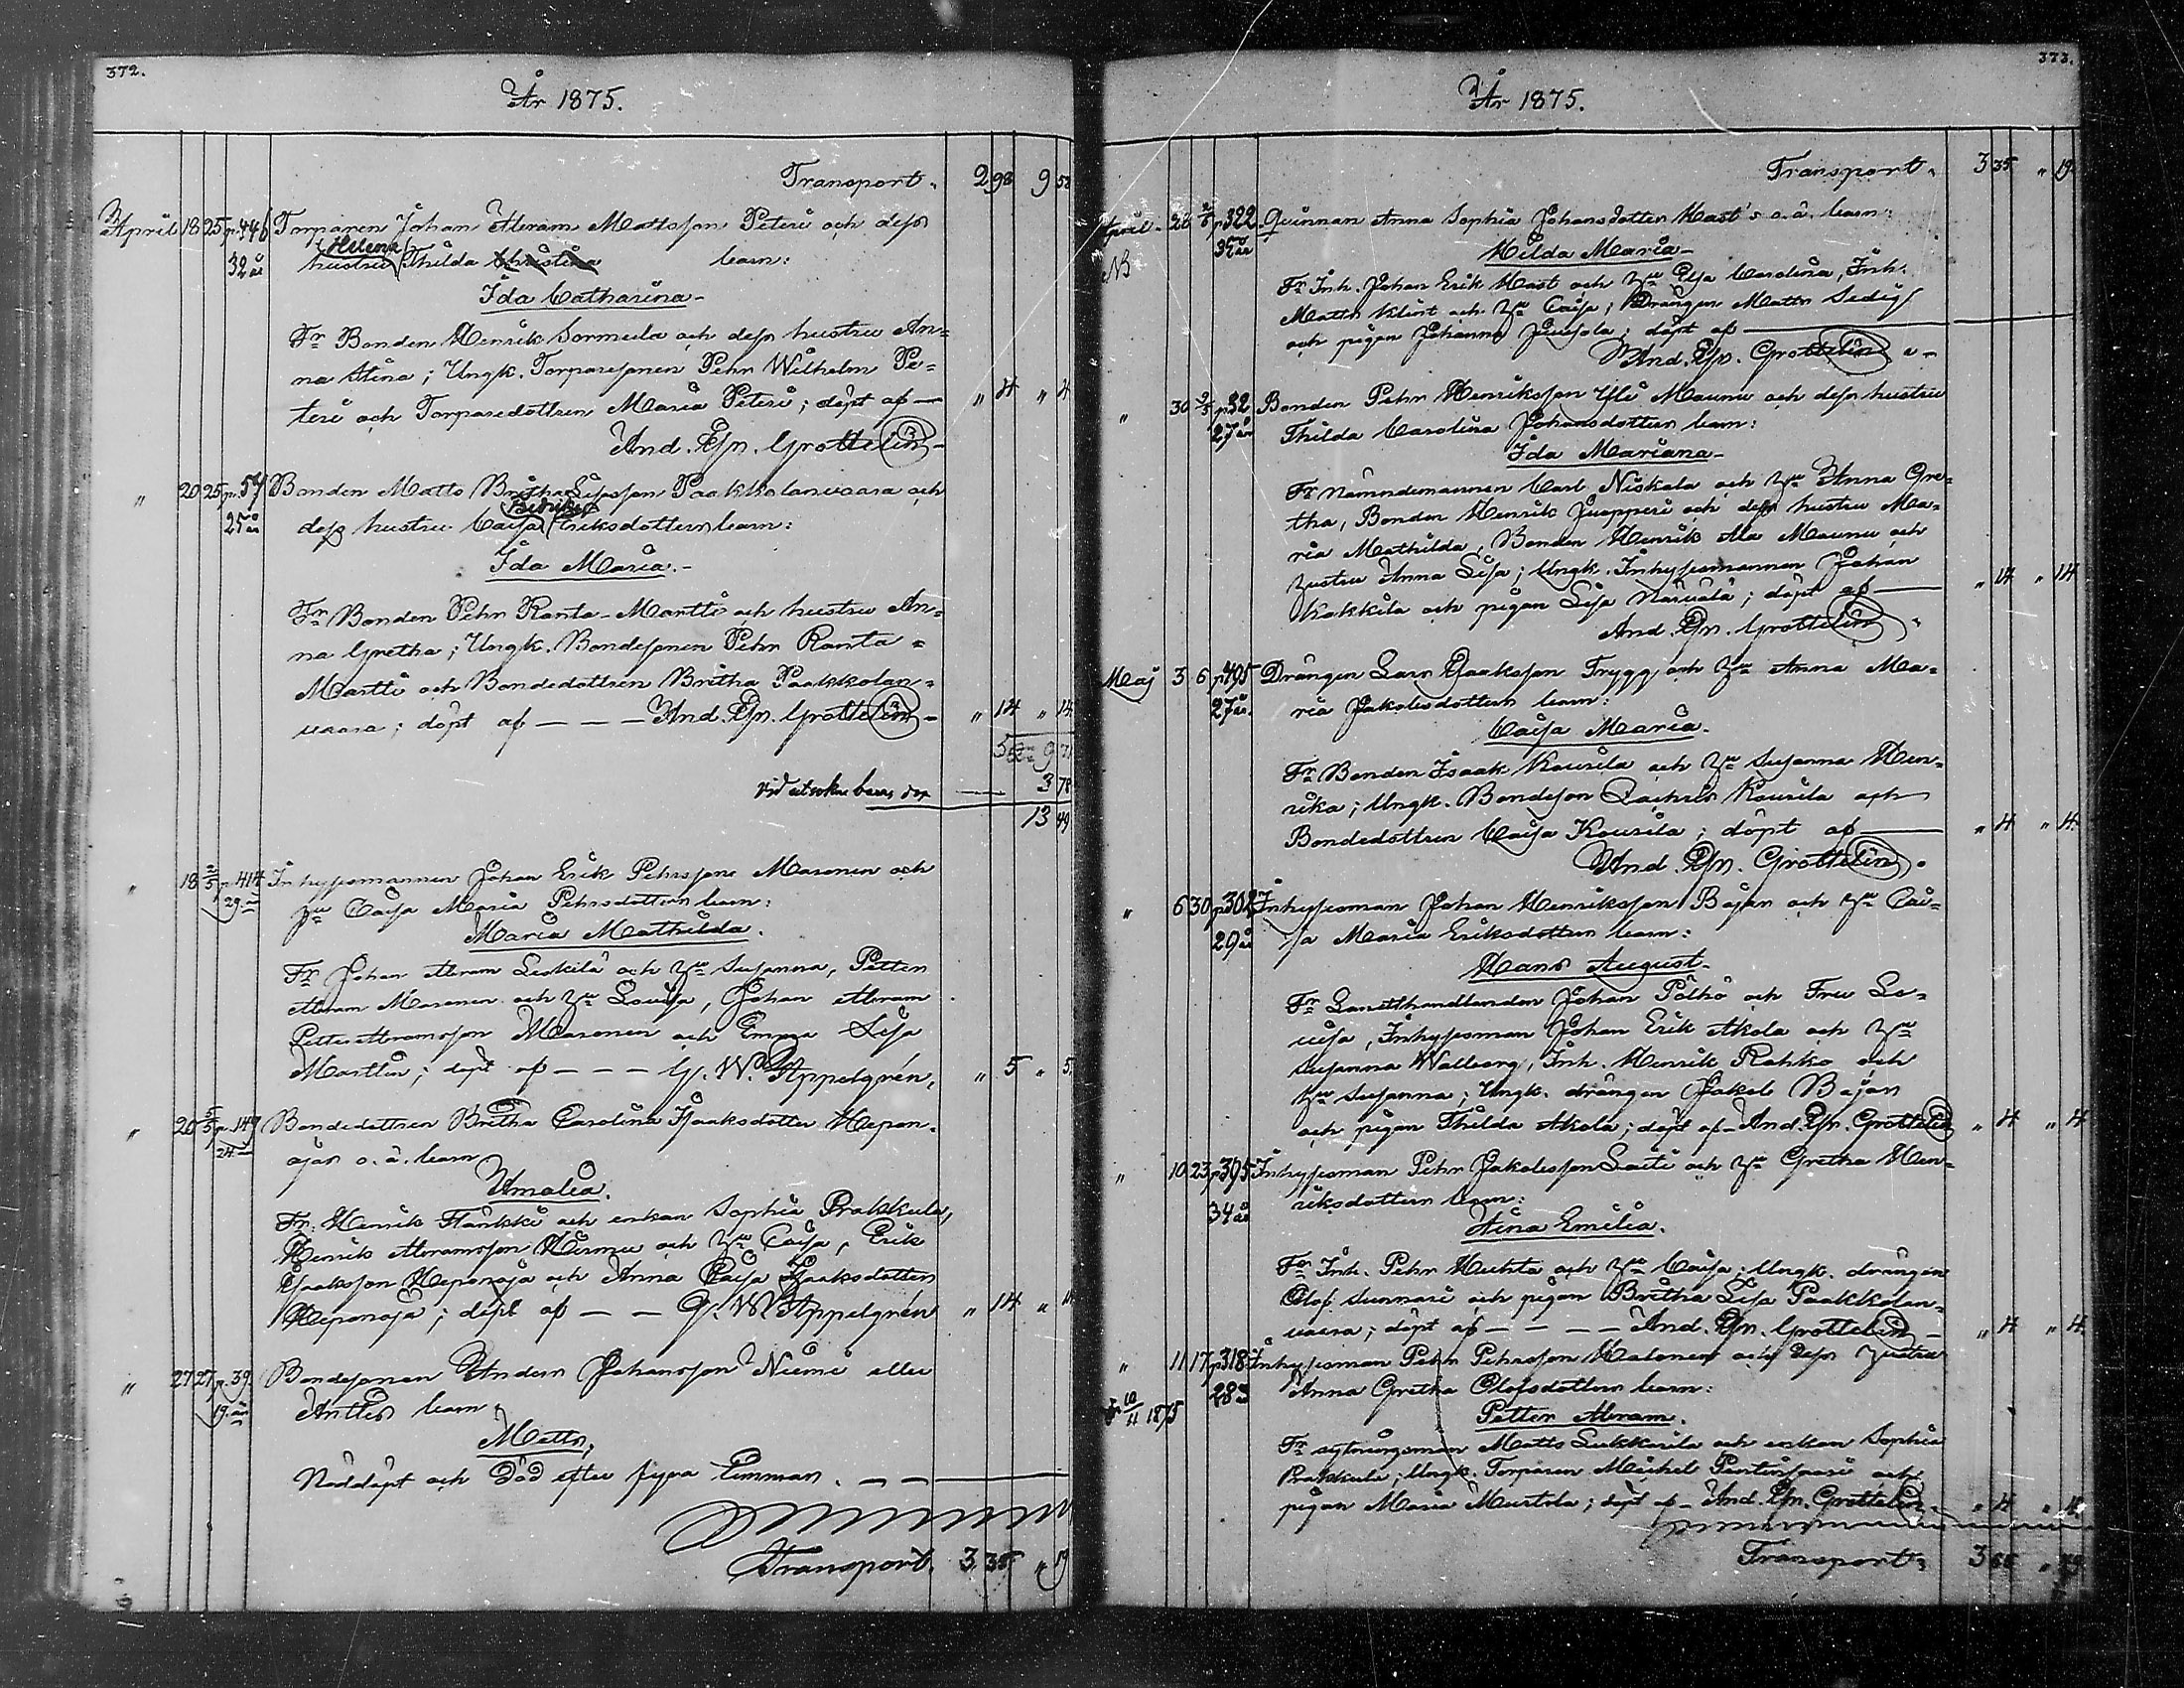 372.
År 1875.
Transport. 2 98 9 58
April 18 25 p. 446 Torparen Johan Abram Mattsson Peteri och dess
32 år hustru Helena Thilda Christina barn:
Ida Catharina
Fr Bonden Henrik Sormula och dess hustru An=
na Stina; Ungk. Torparesonen Pehr Wilhelm Pe=
teri och Torparedottren Maria Peteri; döpt af — " 4 " 4
And. Gn. Grottelin
" 20 25 p. 57 Bonden Matts Britha Lisasson Paakkolanvaara och
25 år dess hustru Caisa Fredrika Eriksdotters barn:
Ida Maria.
Fr Bonden Pehr Ranta-Martti och hustru An=
na Gretha; Ungk. Bondesonen Pehr Ranta=
Martti och Bondedottren Britha Paakkolan=
vaara; döpt af — — — And. Gn. Grottelin " 14 " 14
9 71
3 78
13 49
" 18 2/5 p. 414 Inhysesmannen Johan Erik Pehrsson Maronen och
29 år hu Caisa Maria Pehrsdotters barn:
Maria Mathilda.
Fr Johan Abram Leskelä och hu Susanna, Petter
Abram Maronen och hu Lovisa, Johan Abram
Petter Abramsson Maronen och Lisa
Marttin; döpt af — — — G. W. Appelgrén, " 5 " 5
" 20 5/5 p. 147 Bondedottren Britha Carolina Isaksdotter Hepon=
24 ojas o. ä. barn
Amalia.
Fr. Henrik Hankki och enkan Sophia Prakkula,
Henrik Abramsson Hirmu och hu Caisa, Erik
Isaksson Heponoja och Anna Caisa Isaksdotter
Heponoja; döpt af — — G. W. Appelgrén " 14 "
" 27 27 p. 39 Bondesonen Anders Johansson Niemi eller
19 år Anttis barn
Matts.
Nöddöpt och Död efter fyra timmar. — —
Transport. 3 35 " 19
373.
År 1875.
Transport. 3 35 " 19
April 26 2/5 p. 322 Qvinnan Anna Sophia Johansdotter Mast's o. ä. barn:
NB 37 år Hilda Maria
Fr Inh. Johan Erik Mast och hu Elsa Carolina, Inh.
Matts Klint och hu Caisa; Drängen Matts Sedig
och pigan Johanna Juusola; döpt af
And. Gn. Grottelin
" 30 2/5 p. 32 Bonden Pehr Henriksson Yli Maunu och dess hustru
27 år Thilda Carolina Johansdotters barn:
Ida Mariana
Fr Nämndemannen Carl Niskala och hu Anna Gre=
tha, Bonden Henrik Juopperi och dess hustru Ma=
ria Mathilda, Bonden Henrik Ala Maunu och
hustru Anna Lisa; Ungk. Inhysesmannen Johan
Kokkila och pigan Lisa Närvälä; döpt af — " 14 " 14
And. Gn. Grottelin
Maj 3 6 p. 495 Drängen Lars Isaksson Trygg och hu Anna Ma=
27 år ria Jakobsdotters barn:
Caisa Maria.
Fr Bonden Isaak Kourila och hu Susanna Hen=
rika; Ungk. Bondeson Zachris Kourila och
Bondedottren Caisa Kourila; döpt af — " 4 " 4
And. Gn. Grottelin.
" 6 30 p. 302 Inhysesman Johan Henriksson Bajar och hu Cai=
29 år sa Maria Eriksdotters barn:
Hans August
Fr Landthandlanden Johan Pölhö och Fru Lo=
visa, Inhysesman Johan Erik Akola och hu
Susanna Walborg, Inh. Henrik Rahko och
hu Susanna; Ungk. drängen Jakob Bajar
och pigan Thilda Akola; döpt af — And. Gn. Grottelin " 4 " 4
" 10 23 p. 395 Inhysesman Pehr Jakobsson Laiti och hu Gretha Hen=
34 år riksdotters barn:
Stina Emilia.
Fr Inh. Pehr Huhta och hu Caisa; Ungk. drängen
Olof Sunnari och pigan Britha Lisa Paakkolan=
vaara; döpt af — — — — And. Gn. Grottelin " 4 " 4
" 11 17 p. 318 Inhysesman Pehr Pehrsson Halonen och dess hustru
10/11 1875 28 år Anna Gretha Olofsdotters barn:
Petter Abram.
Fr sytningsman Matts Lukkarila och enkan Sophia
Prakkula; Ungk. Torparen Michel och
pigan Maria Murtola; döpt af — And. Gn. Grottelin. " 4 " 4
Transport